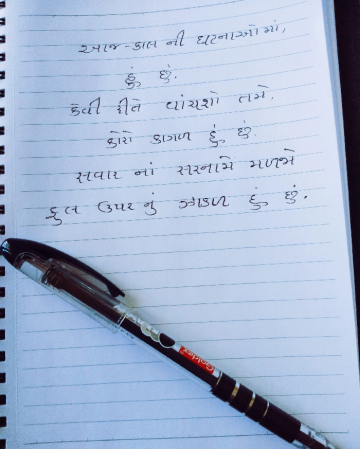 આજ-કાલ ની ઘટનાઓમાં,
હું છું.
કેવી રીતે વાંચશો તમે,
કોરો કાગળ હું છું.
સવાર નાં સરનામે મળજો
ફુલ ઉપર નું ઝાકળ હું છું.